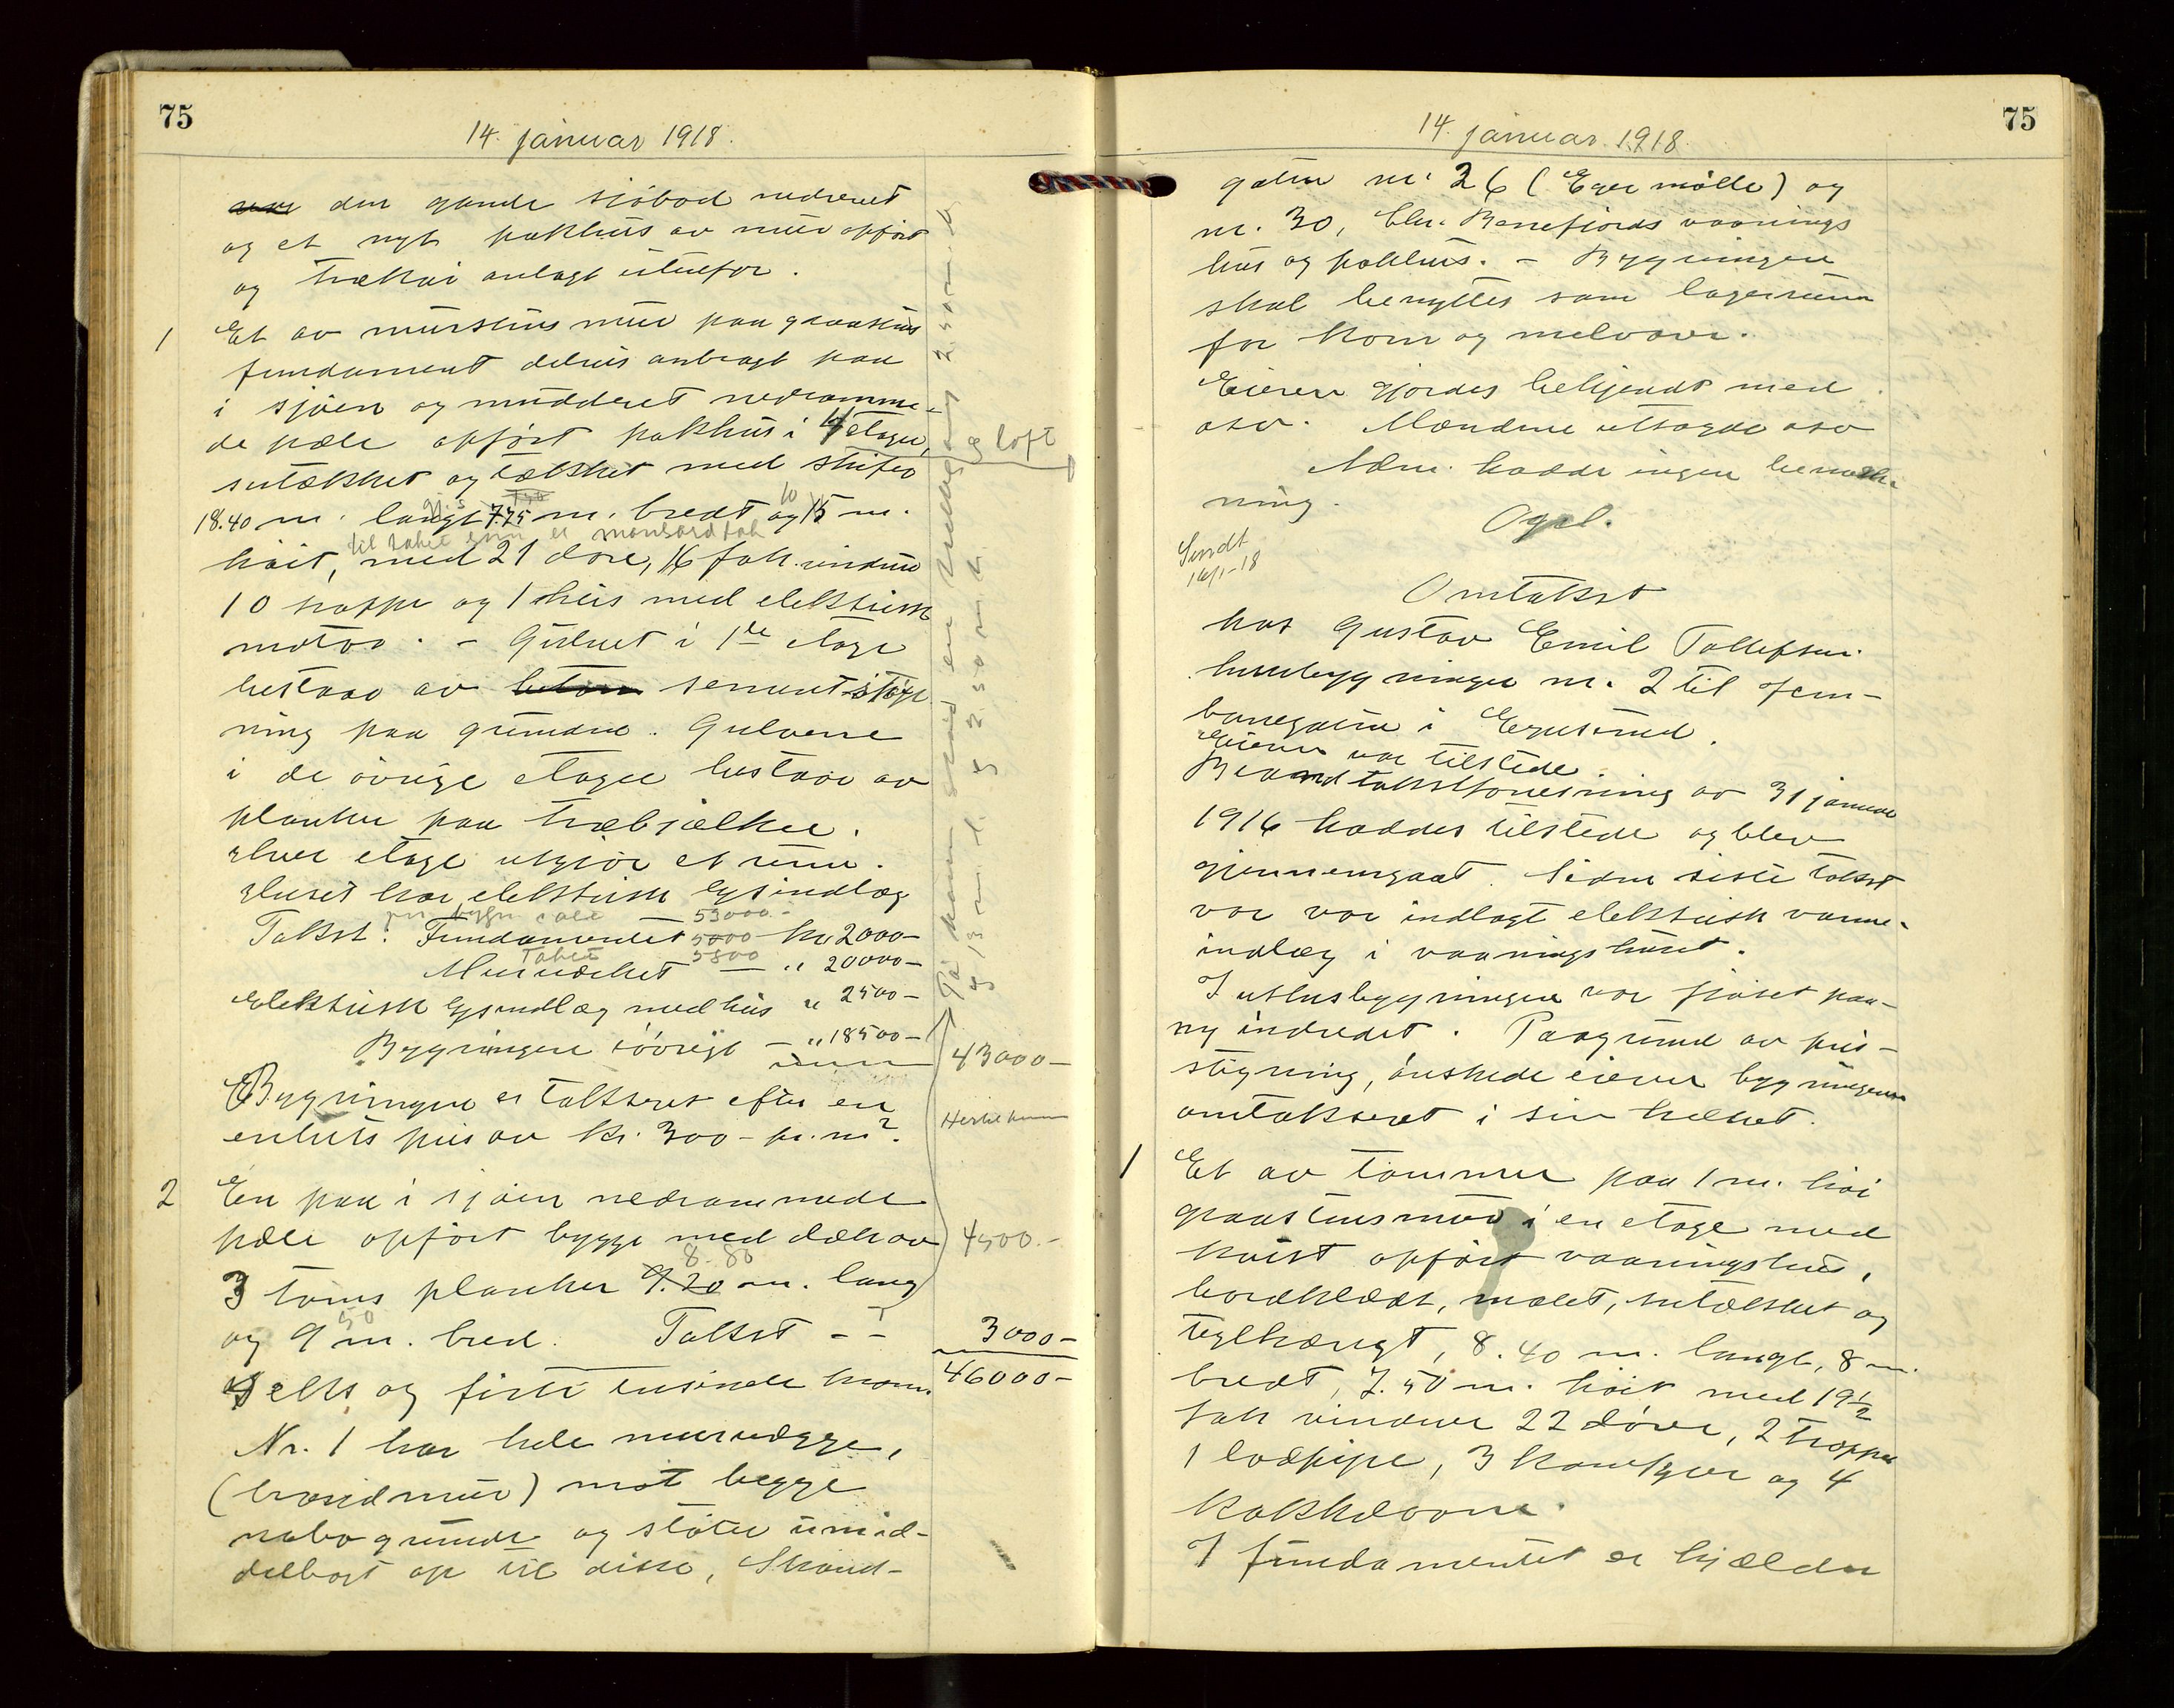 75
14. januar 1918.
den gamle sjöbod nedrevet
og et nyt pakhus av mur opfört
og trækai anlagt utenfor.
1 Et av murstens mur paa graastens
fundament delvis anbragt paa
i sjöen og mudderet nedramme-
de pæle opfört pakhus i 4 etager, og loft
sutækket og tækket med skifer
18.40 m. langt 7.75 m. bredt og 15 m.
til taket som er mansardtak
höit, med 21 döre, 16 fah vinduer
10 trapper og 1 heis med elektrisk
motor. - Gulvet i 1ste etage
bestaar av beton sement støp-
ning paa grunden. Gulvene
i de övrige etager bestaar av
planker paa træbjælker.
Hver etage utgjör et rum.
Huset har elektrisk lysindlæg
53000.-
Takst: Fundamentet 5000 kr 2000-
Taket 5800
Murverket — " 20000-
Elektrisk lysindlæg med heis " 2500-
Bygningen iövrigt - " 18500- 43000-
Bygningen er takseret efter en
enhets pris av Kr. 300- pr. m².
2 En paa i sjöen nedrammede
pæle opfört brygge med dæk av 4500.-
8.80
3 toms planker 9.20 m. lang
50
og 9 m. bred. Takst - - 3000-
Seks og firti tusinde kroner 46000-
Nr. 1 har hele murvægge,
(brandmur) mot begge
nabogrunde og stöter umid-
delbart op til disse, Strand-
75
14. januar 1918.
gaten nr. 26 (Eger mölle) og
nr. 30, Chr. Bennefjords vaanings
hus og pakhus. - Bygningen
skal benyttes som lagerrum
for korn og melvare.
Eieren gjordes bekjendt med
osv. Mændene utsagde osv
Adm. hadde ingen bemerk-
ning.
Opl.
Sendt
16/1-18
Omtakst
hos Gustav Emil Tollefsen
husebygninger nr. 2 til Jern-
banegaten i Egersund.
Eieren var tilstede.
Brandtakstforretning av 31 januar
1916 haddes tilstede og blev
gjennemgaat. Siden siste takst
var var indlagt elektrisk varme-
indlæg i vaaningshuset.
I uthusbygningen var fjöset paa-
ny indredet. Paagrund av pris-
stigning, önskede eieren bygningene
omtakseret i sin helhet.
1 Et av tömmer paa 1 m. höi
graastensmur i en etage med
kvist opfört vaaningshus,
bordklædt, malet, sutækket og
teglhængt, 8.40 m. langt, 8 m.
bredt, 7.50 m. höit med 19½
fah vinduer 22 döre, 2 trapper
1 lodpipe, 3 komfyrer og 4
kakkelovne.
I fundamentet er kjælder